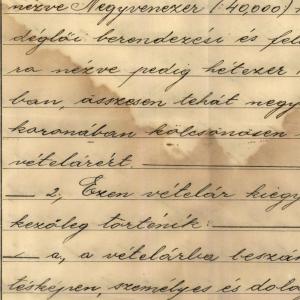 nézve Negyvenezer (:40,000)
déglői berendezési és fel
ra nézve pedig hétezer
ban, összesen tehát negy
koronában kölcsönösen
vételárért.
2, Ezen vételár kiegy
kezőleg történik:
a, a vételárba beszám
tésképen, személyes és dolo